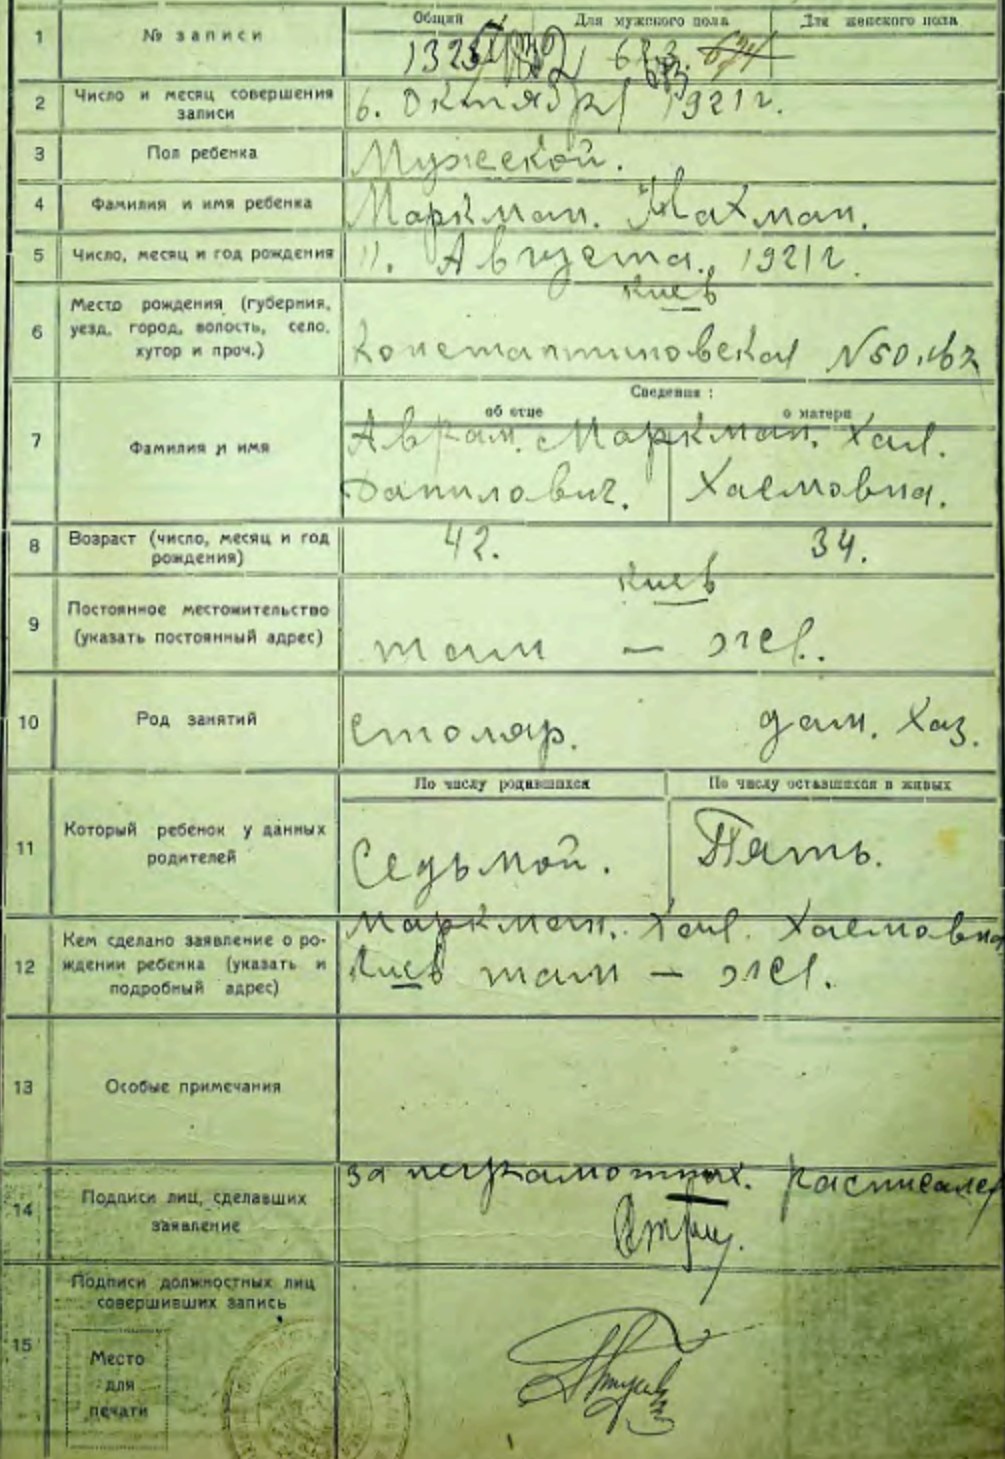 1 № записи
Общий Для мужского пола Для женского пола
1325 683. 674
683
2 Число и месяц совершения
записи
6. Октября 1921 г.
3 Пол ребенка Мужеской.
4 Фамилия и имя ребенка Маркман. Нахман.
5 Число, месяц и год рождения 11. Августа. 1921 г.
6 Место рождения (губерния,
уезд, город, волость, село,
хутор и проч.)
Киев
Констаптиновская N 50. кв 2
7 Фамилия и имя
Сведения :
об отце о матери
Аврам. Маркман. Хая.
Данилович. Хаемовна.
8 Возраст (число, месяц и год
рождения)
42. 34.
9 Постоянное местожительство
(указать постоянный адрес)
Киев
там — же.
10 Род занятий столяр. дом. хаз.
11 Который ребенок у данных
родителей
По числу родившихся По числу оставшихся в живых
Седьмой. Пять.
12 Кем сделано заявление о ро-
ждении ребенка (указать и
подробный адрес)
Маркман. Хая. Хаемовна
Киев там — же.
13 Особые примечания
14 Подписи лиц, сделавших
заявление
за неграмотных. расписался
15 Подписи должностных лиц
совершивших запись
Место
для
печати